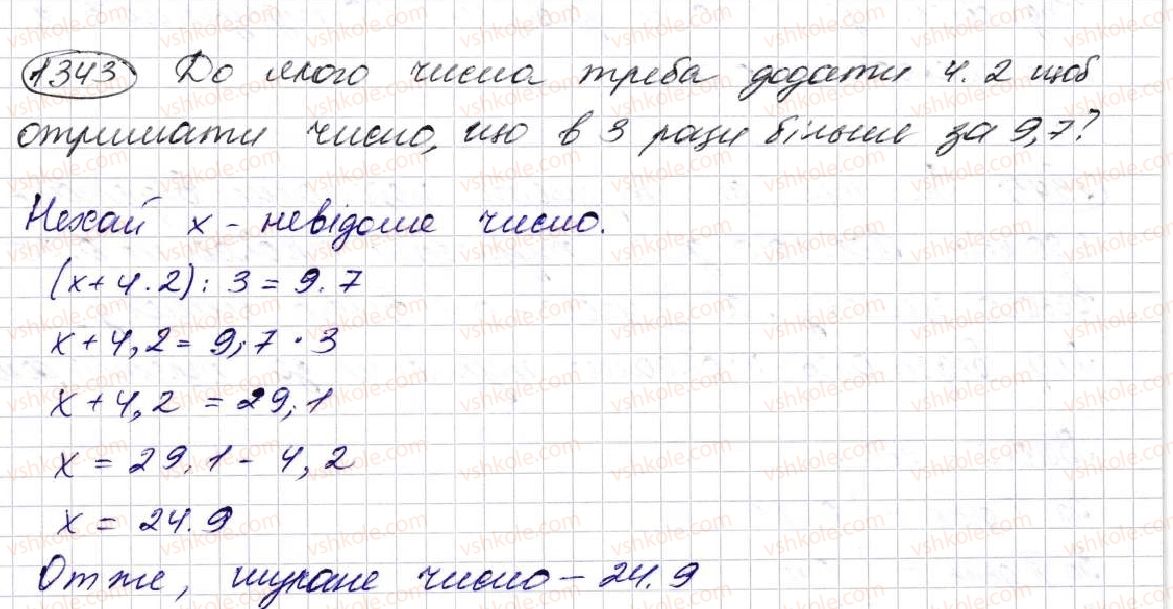 1343 До якого числа треба додати 4.2 щоб
отримати число, що в 3 рази більше за 9,7?
Нехай x - невідоме число.
(x+4.2): 3 = 9.7
x+4,2 = 9,7 · 3
x+4,2 = 29,1
x = 29,1 - 4,2
x = 24.9
Отже, шукане число - 24.9